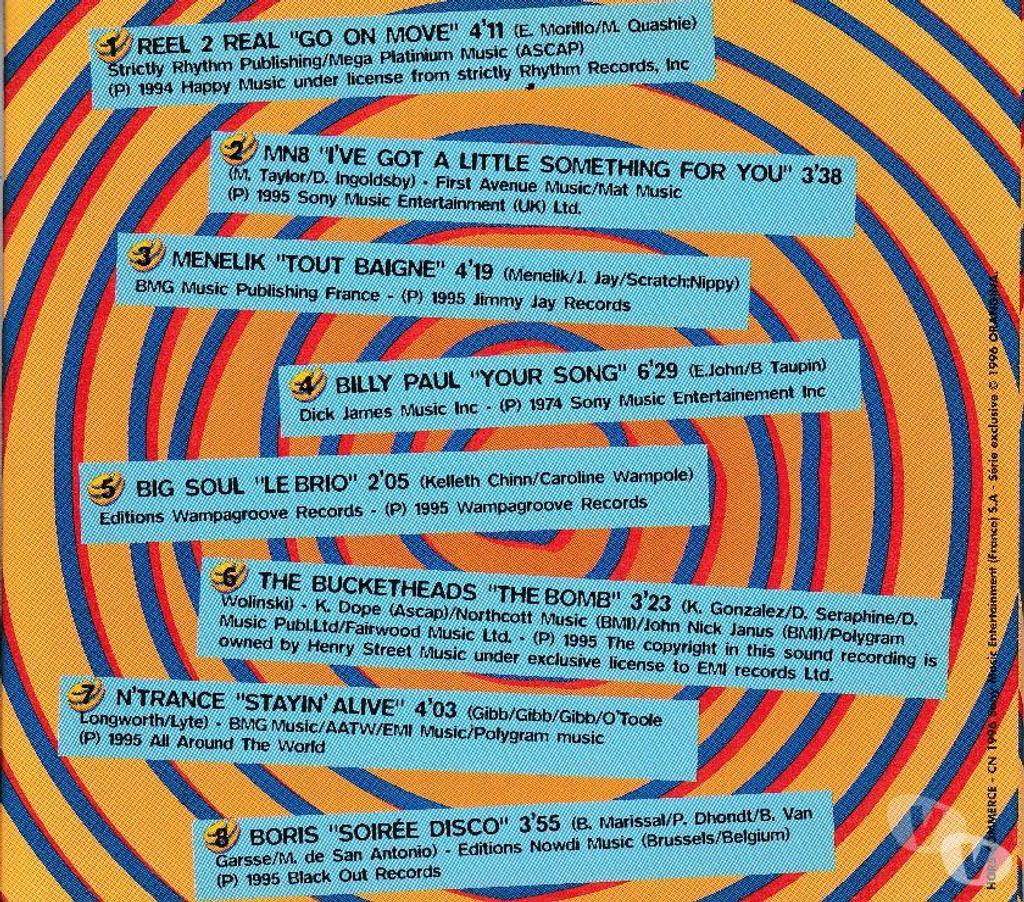 1 REEL 2 REAL "GO ON MOVE" 4'11 (E. Morillo/M. Quashie)
Strictly Rhythm Publishing/Mega Platinium Music (ASCAP)
(P) 1994 Happy Music under license from strictly Rhythm Records, Inc
2 MN8 "I'VE GOT A LITTLE SOMETHING FOR YOU" 3'38
(M. Taylor/D. Ingoldsby) - First Avenue Music/Mat Music
(P) 1995 Sony Music Entertainment (UK) Ltd.
3 MENELIK "TOUT BAIGNE" 4'19 (Menelik/J. Jay/Scratch:Nippy)
BMG Music Publishing France - (P) 1995 Jimmy Jay Records
4 BILLY PAUL "YOUR SONG" 6'29 (E.John/B Taupin)
Dick James Music Inc - (P) 1974 Sony Music Entertainement Inc
5 BIG SOUL "LE BRIO" 2'05 (Kelleth Chinn/Caroline Wampole)
Editions Wampagroove Records - (P) 1995 Wampagroove Records
6 THE BUCKETHEADS "THE BOMB" 3'23 (K. Gonzalez/D. Seraphine/D.
Wolinski) - K. Dope (Ascap)/Northcott Music (BMI)/John Nick Janus (BMI)/Polygram
Music Publ.Ltd/Fairwood Music Ltd. - (P) 1995 The copyright in this sound recording is
owned by Henry Street Music under exclusive license to EMI records Ltd.
7 N'TRANCE "STAYIN' ALIVE" 4'03 (Gibb/Gibb/Gibb/O'Toole
Longworth/Lyte) - BMG Music/AATW/EMI Music/Polygram music
(P) 1995 All Around The World
8 BORIS "SOIRÉE DISCO" 3'55 (B. Marissal/P. Dhondt/B. Van
Garsse/M. de San Antonio) - Editions Nowdi Music (Brussels/Belgium)
(P) 1995 Black Out Records
- CN 1996 Sony Music Entertainment (France) S.A - Série exclusive © 1996 ORANGINA
V V